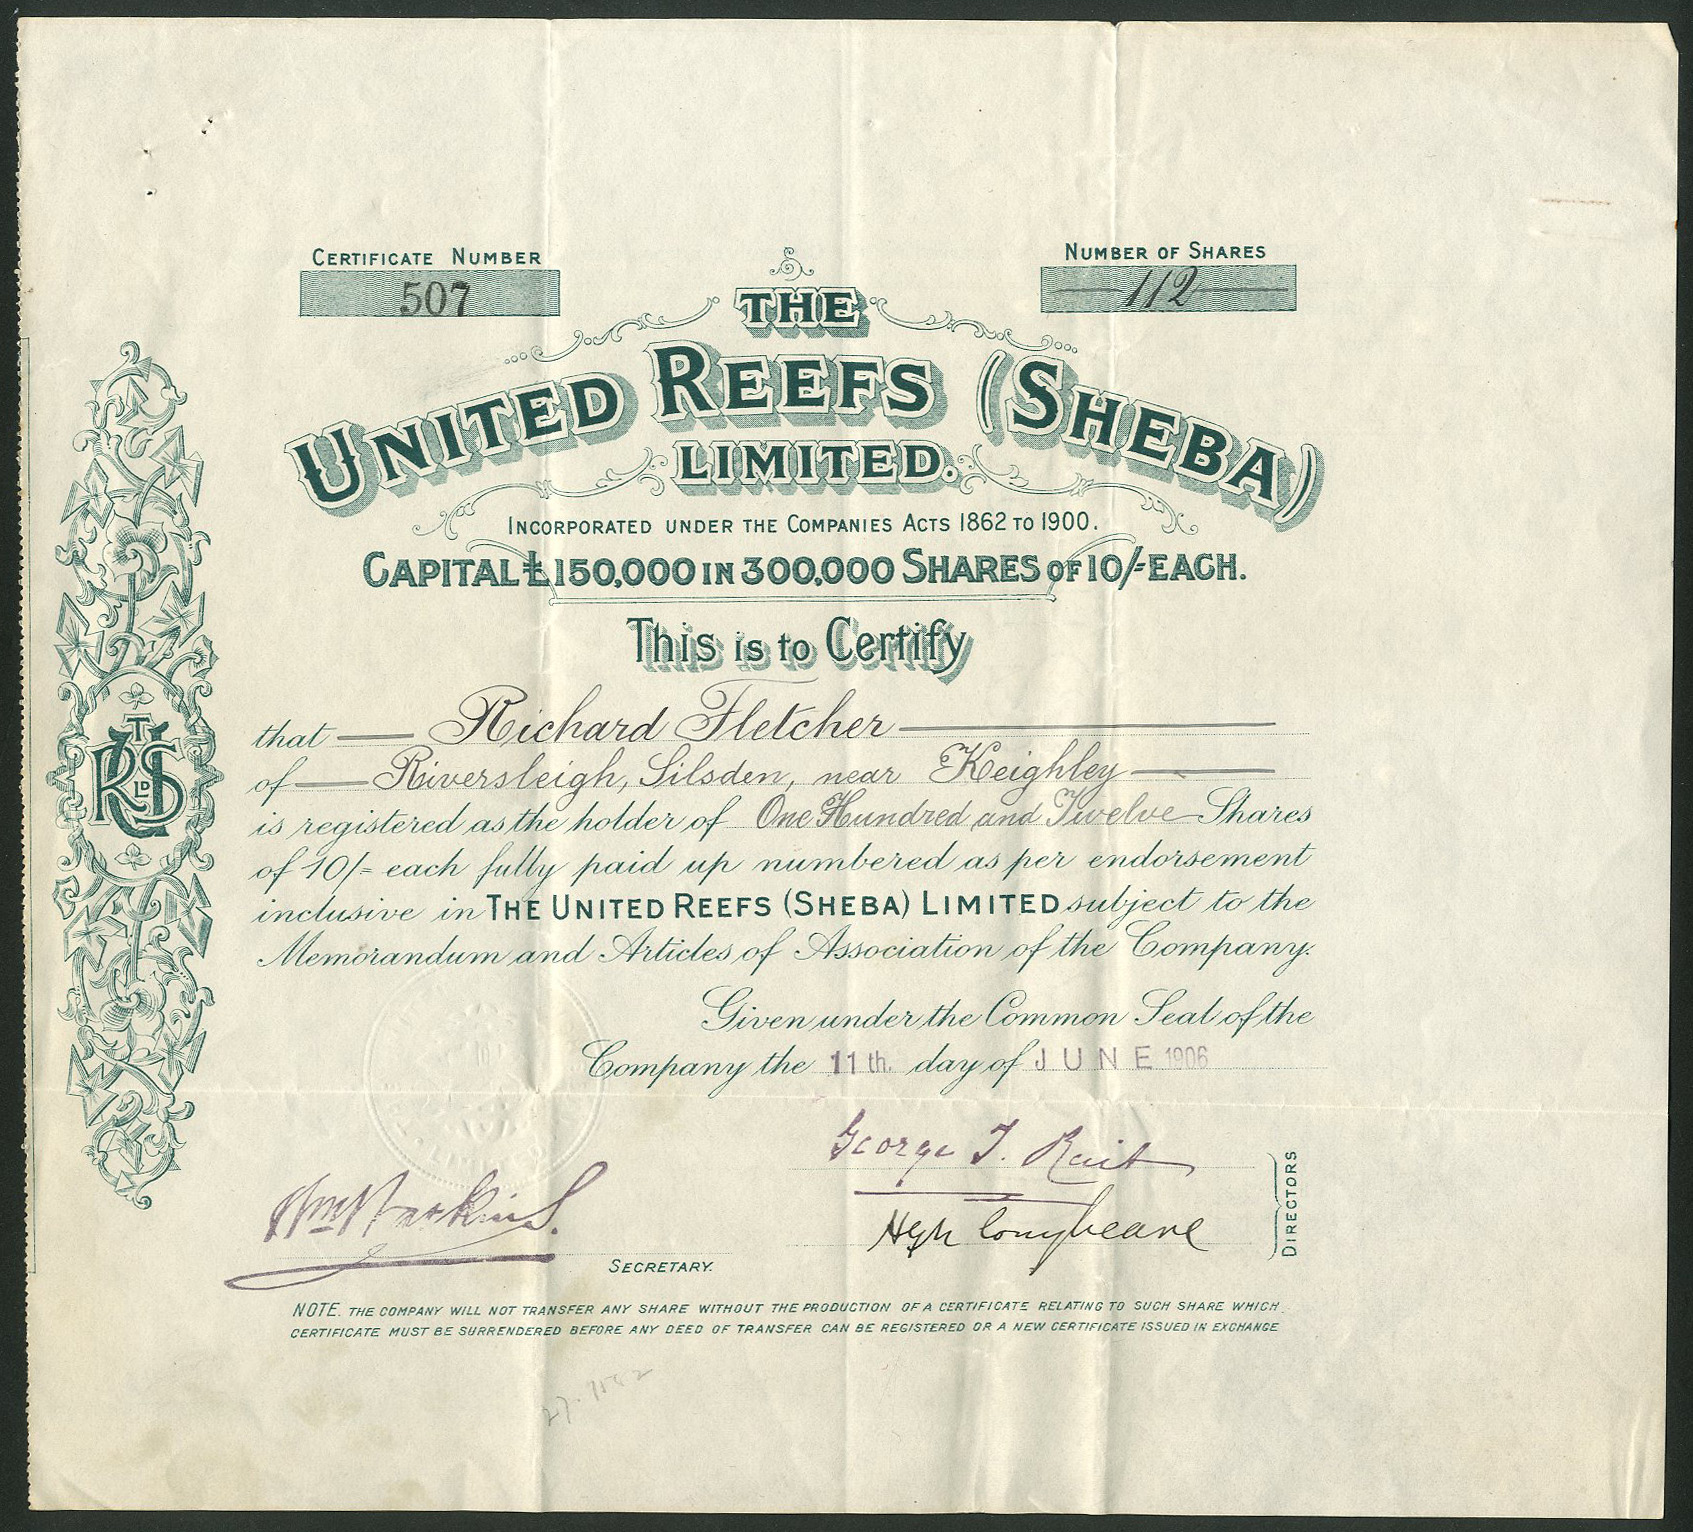 CERTIFICATE NUMBER
507
NUMBER OF SHARES
112
THE
UNITED REEFS (SHEBA)
LIMITED.
INCORPORATED UNDER THE COMPANIES ACTS 1862 TO 1900.
CAPITAL £150,000 IN 300,000 SHARES OF 10/- EACH.
This is to Certify
that Richard Fletcher
of Riversleigh, Silsden, near Keighley
is registered as the holder of One Hundred and Twelve Shares
of 10/= each fully paid up numbered as per endorsement
inclusive in THE UNITED REEFS (SHEBA) LIMITED subject to the
Memorandum and Articles of Association of the Company.
Given under the Common Seal of the
Company the 11th. day of JUNE 1906
George T. Rait
DIRECTORS
SECRETARY.
NOTE. THE COMPANY WILL NOT TRANSFER ANY SHARE WITHOUT THE PRODUCTION OF A CERTIFICATE RELATING TO SUCH SHARE WHICH
CERTIFICATE MUST BE SURRENDERED BEFORE ANY DEED OF TRANSFER CAN BE REGISTERED OR A NEW CERTIFICATE ISSUED IN EXCHANGE